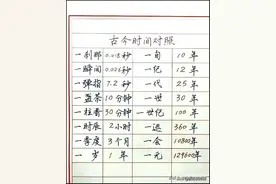 古今时间对照
一刹那 0.018秒 一旬 10年
一瞬间 0.026秒 一纪 12年
一弹指 7.2秒 一代 25年
一盏茶 10分钟 一世 30年
一柱香 30分钟 一世纪 100年
一时辰 2小时 一运 360年
一季度 3个月 一会 10800年
一岁 1年 一元 129600年